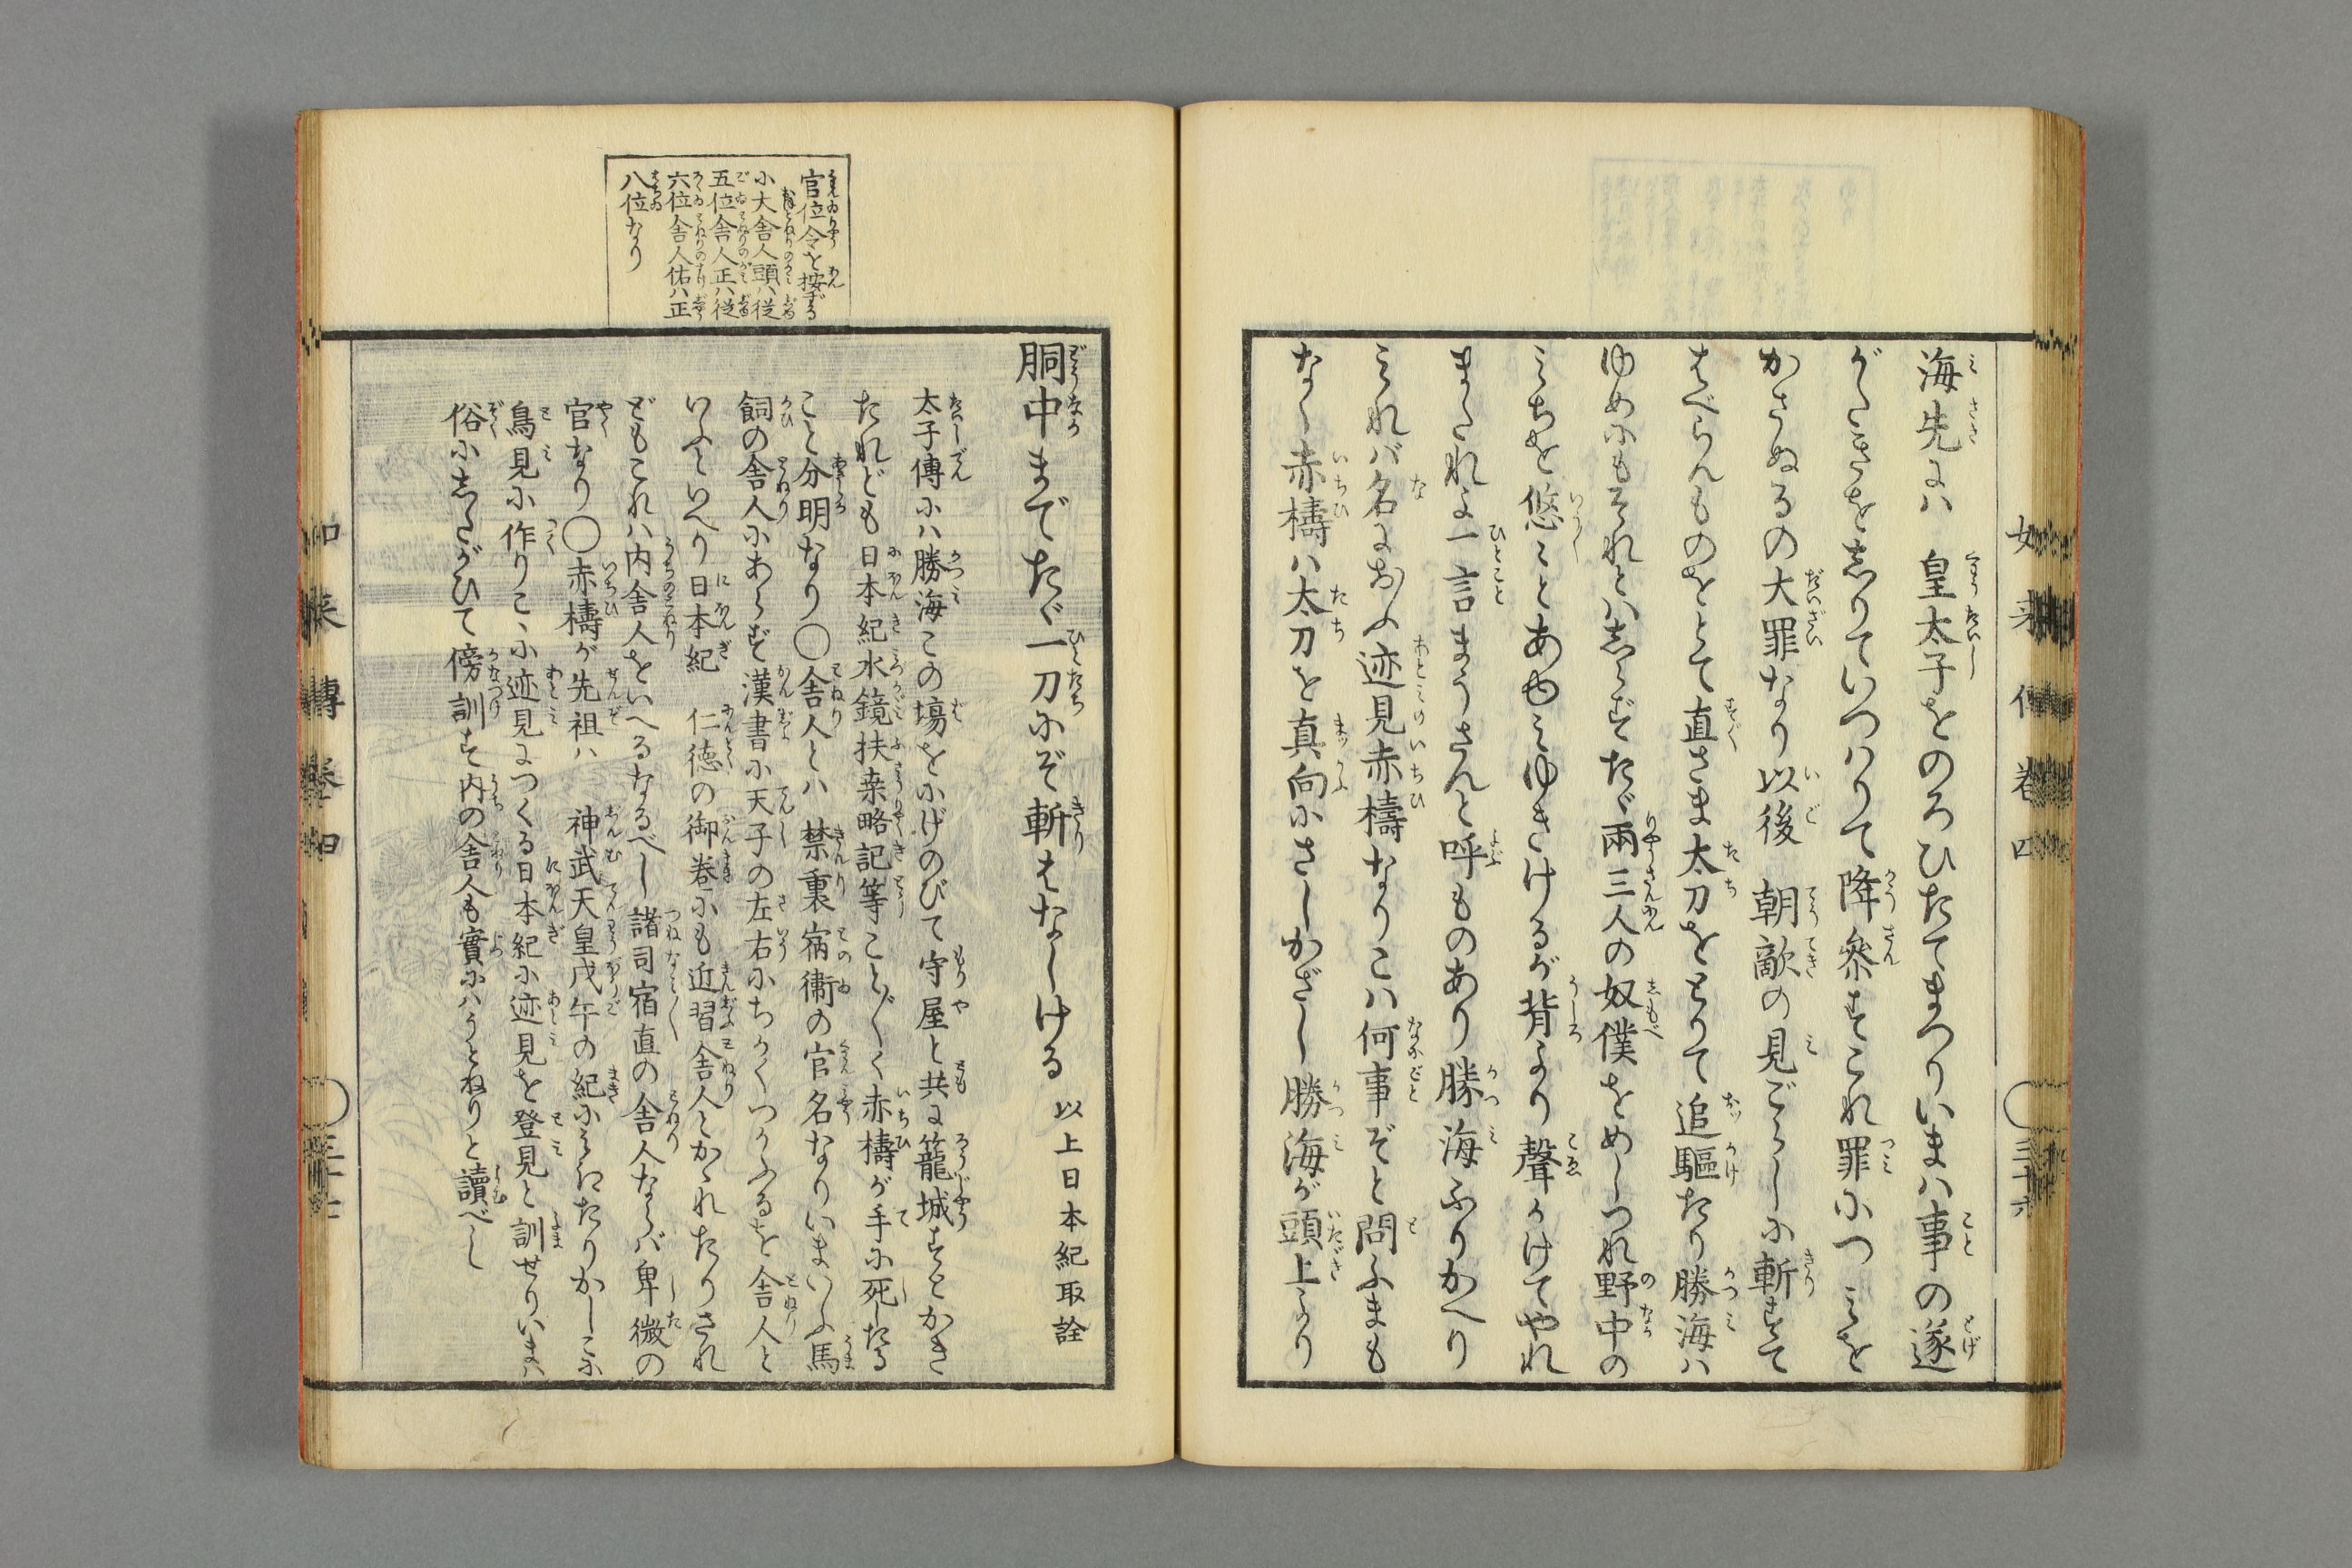 海先よハ　皇太子をのろひたてまつりいまハ事の遂
がたきを志りていつハりて降參すこれ罪につみを
かさぬるの大罪なり以後　朝敵の見ごらしに斬すて
はべらんものをとて直さま太刀をとりて追驅たり勝海ハ
ゆめにもそれとハ志らずたゞ兩三人の奴僕をめしつれ野中の
みちを悠々とあゆみゆきけるが背より聲かけてやれ
またれよ一言まうさんと呼ものあり勝海ふりかへり
みれバ名におふ迹見赤檮なりこハ何事ぞと問ふまも
なく赤檮ハ太刀を真向にさしかざし勝海が頭上より
如来傳卷四
三十六
胴中までたゞ一刀にぞ斬はなしける　以上日本紀取詮
太子傳にハ勝海この場をにげのびて守屋と共に籠城すとかき
たれども日本紀水鏡扶桒略記等こと〴〵く赤檮が手に死したる
こと分明なり〇舎人とハ　禁裏宿衛の官名なりいまいふ馬
飼の舎人にあらず漢書に天子の左右にちかくつかふるを舎人と
いふといへり日本紀　仁徳の御巻にも近習舎人とかゝれたりされ
どもこれハ内舎人をいへるなるべし諸司宿直の舎人ならバ卑微の
官なり〇赤檮が先祖ハ　神武天皇戊午の紀にみえたりかしこに
鳥見に作りこゝに迹見につくる日本紀に迹見を登見と訓せりいまハ
俗にしたがひて傍訓す内の舎人も實にハうとねりと讀べし
官位令を按ずる
小大舎人頭ハ従
五位舎人正ハ従
六位舎人佑ハ正
八位なり